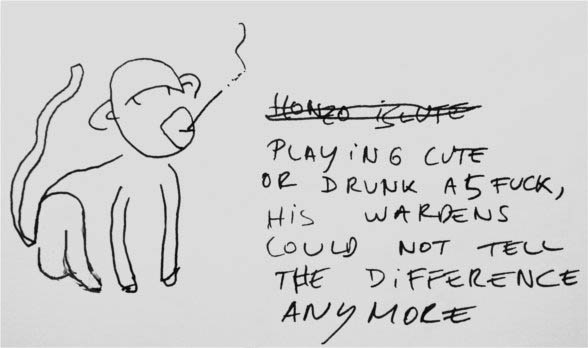 HONZO iS CUTE
PLAYiNG CUTE
OR DRUNK AS FUCK,
HiS WARDENS
COULD NOT TELL
THE DiFFERENCE
ANYMORE